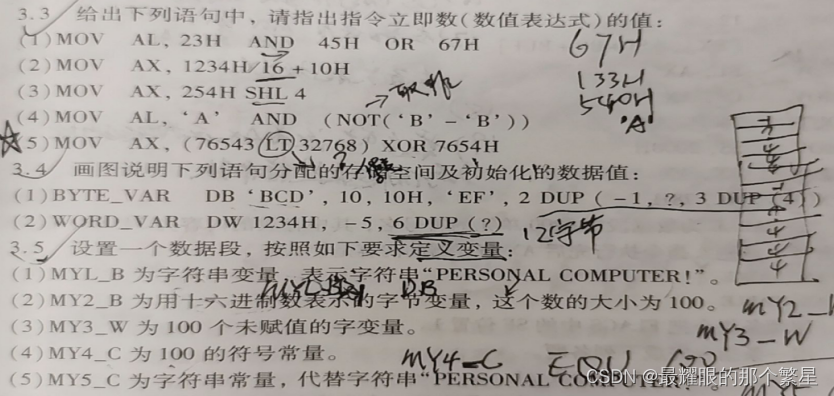 3.3 给出下列语句中，请指出指令立即数(数值表达式)的值：
(1)MOV AL, 23H AND 45H OR 67H 67H
(2)MOV AX, 1234H/16+10H 133H
(3)MOV AX, 254H SHL 4 540H
(4)MOV AL, ‘A’ AND (NOT(‘B’-‘B’)) 'A'
(5)MOV AX, (76543 LT 32768) XOR 7654H
3.4 画图说明下列语句分配的存储空间及初始化的数据值：
(1)BYTE_VAR DB ‘BCD’, 10, 10H, ‘EF’, 2 DUP(-1, ?, 3 DUP(4))
(2)WORD_VAR DW 1234H, -5, 6 DUP(?) 12字节
3.5 设置一个数据段，按照如下要求定义变量：
(1)MYL_B为字符串变量，表示字符串“PERSONAL COMPUTER!”。
DB
(2)MY2_B为用十六进制数表示的字节变量，这个数的大小为100。 MY2_
(3)MY3_W为100个未赋值的字变量。 MY3_W
(4)MY4_C为100的符号常量。 MY4_C EQU 100
(5)MY5_C为字符串常量，代替字符串“PERSONAL COMPUTER!”。
CSDN @最耀眼的那个繁星